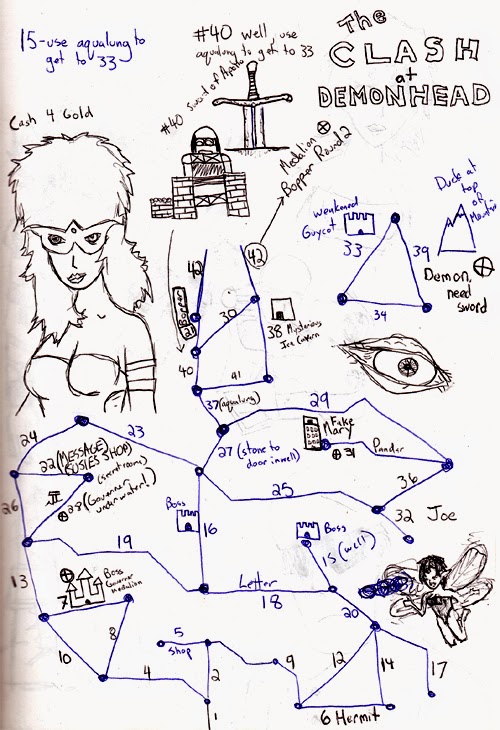 15-use aqualung to
get to 33
#40 well, use
aqualung to get to 33
The
CLASH
at
DEMONHEAD
Cash 4 Gold
#40 Sword of Apollo
Medalion
Bopper Round 2
42
42
Bopper
21
30
40
41
38 Mysterious
Ice Cavern
37 (aqualung)
weakened
Guycot
33
39
34
Duck at
top
of
Mountain
Demon,
need
sword
24
23
22 (MESSAGE)
(SUSIES SHOP)
(secret rooms)
28 (Governer
underwater!)
26
27 (stone to
door in well)
29
Fake
Mary
31
Pandar
36
25
32
Joe
Boss
16
Boss
15 (well)
19
Letter
18
20
13
7
Boss
Governer
Medalion
8
10
4
5
shop
2
1
9
12
14
17
6 Hermit